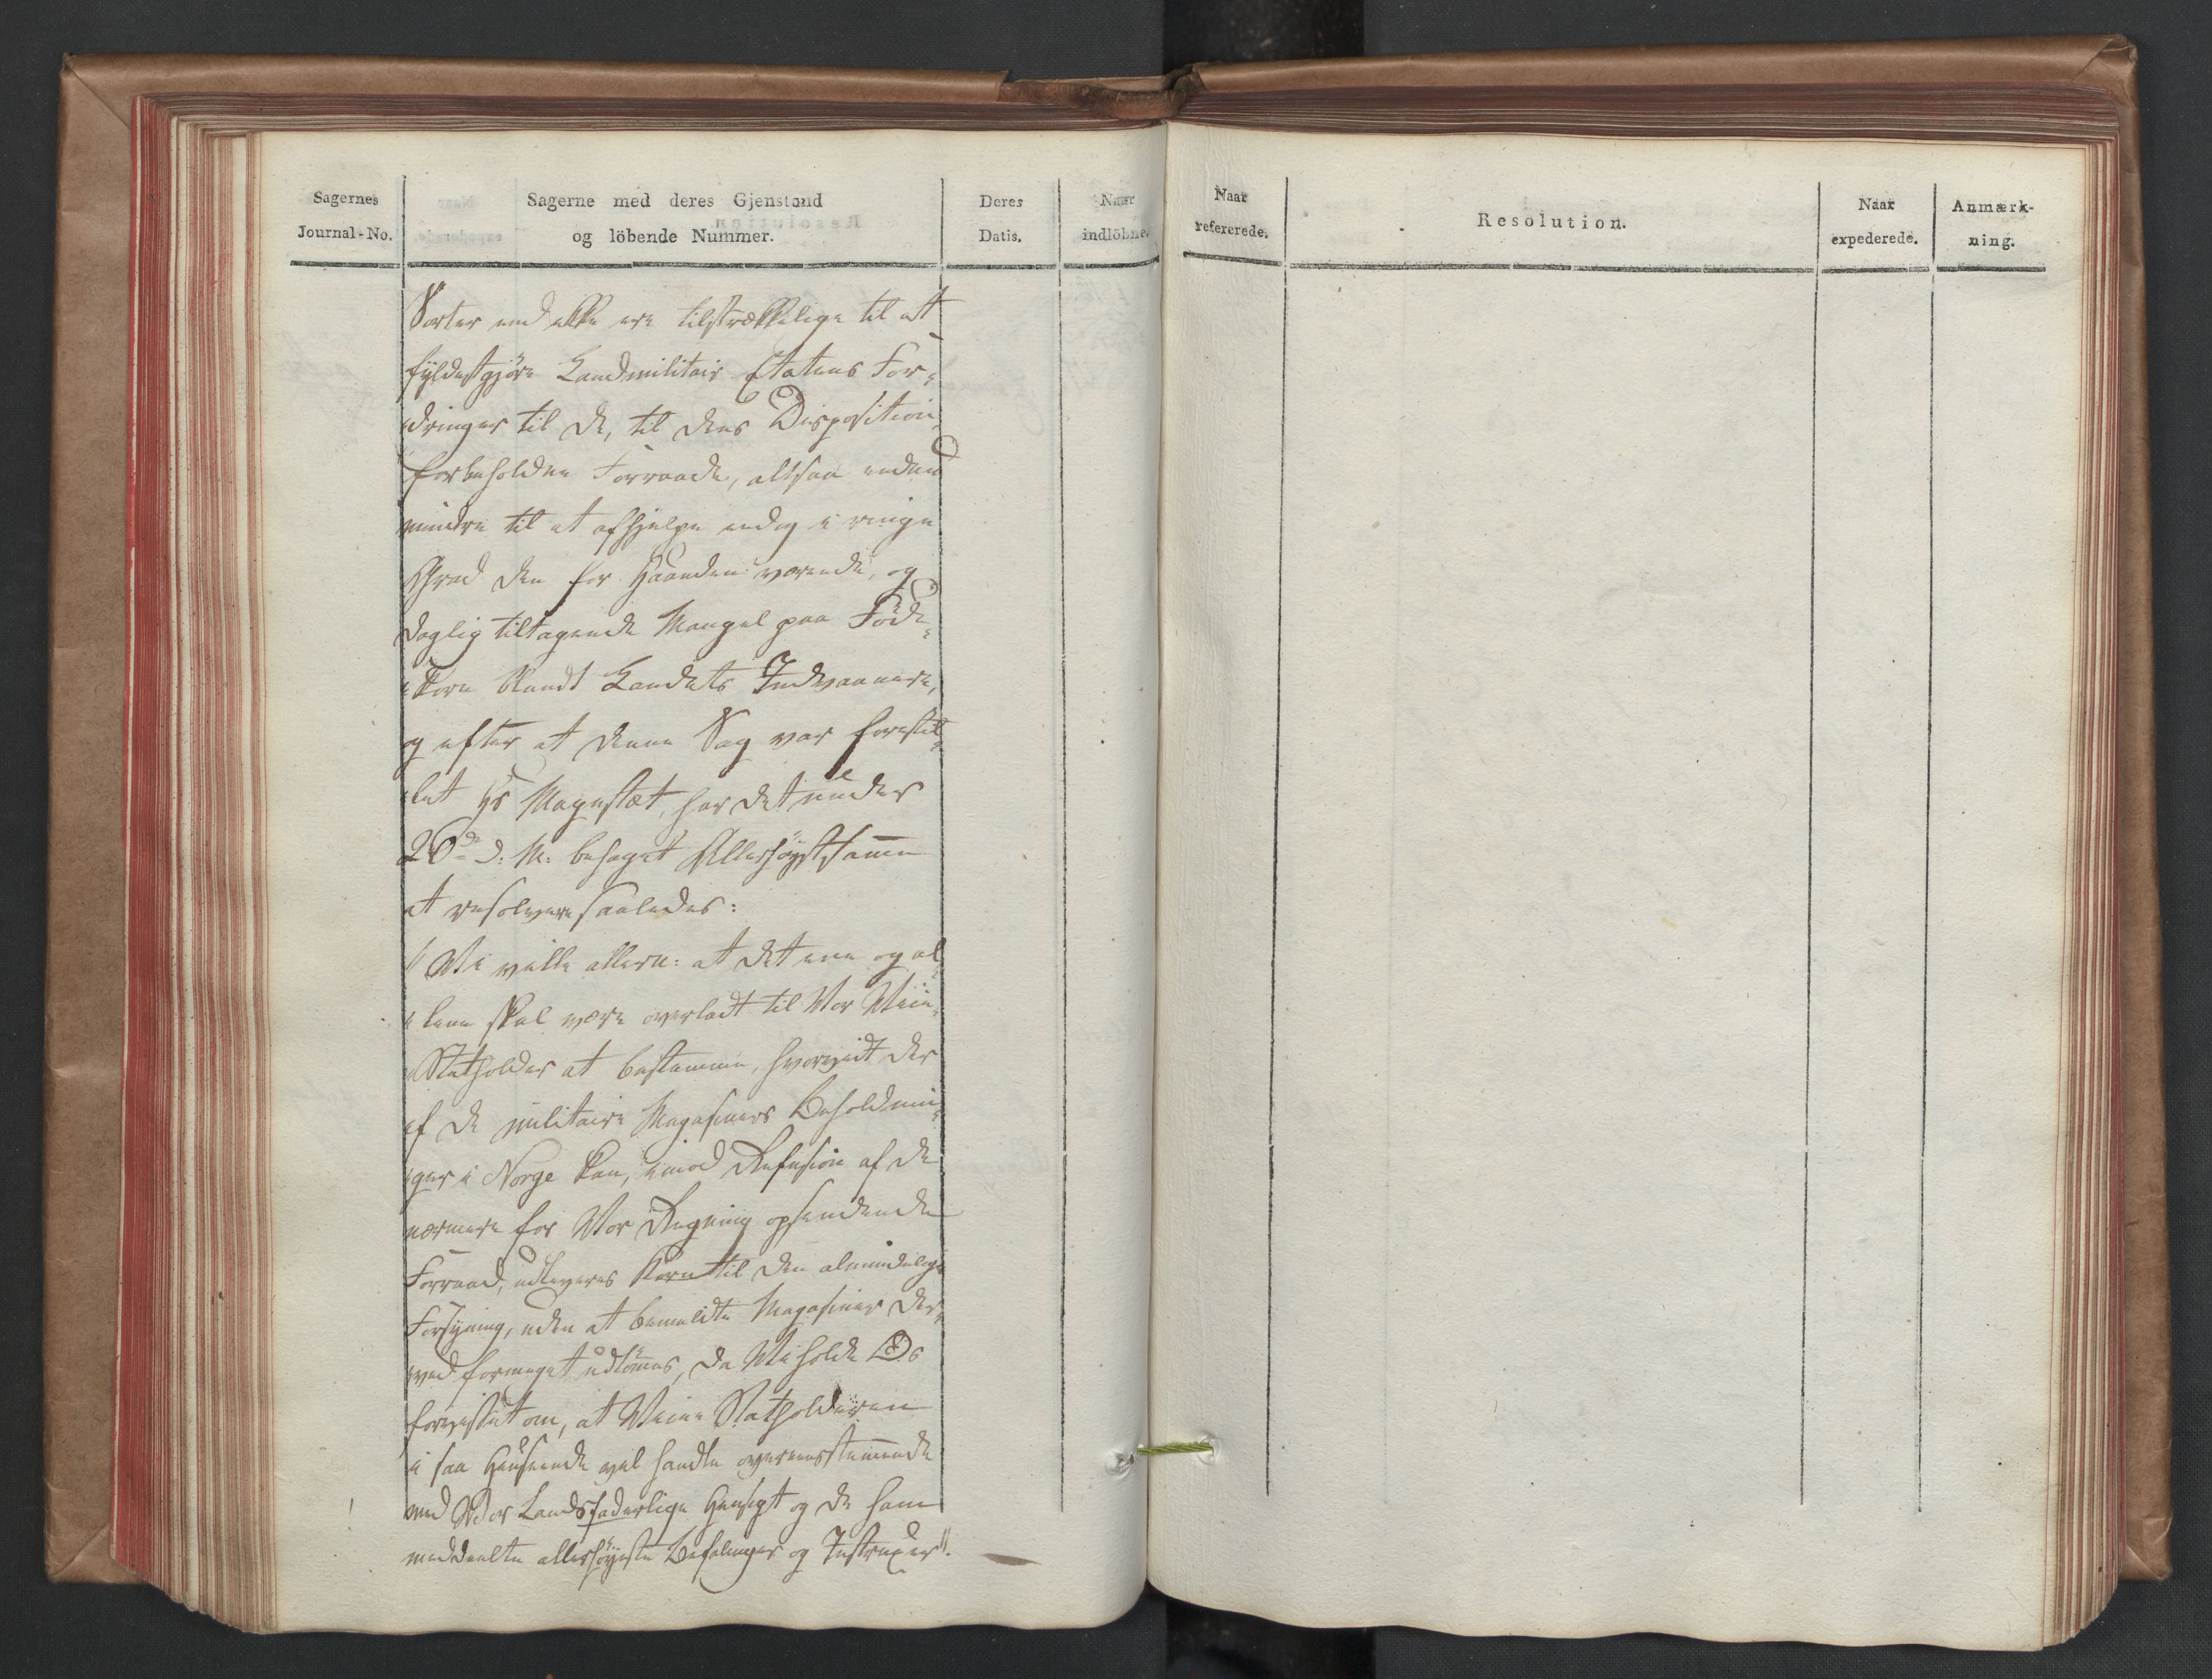 Sagernes
Journal-No.
Sagerne med deres Gjenstand
og löbende Nummer.
Deres
Datis.
Naar
indlöbne.
Naar
refererede.
Resolution.
Naar
expederede.
Anmærk-
ning.
Sorter end ikke ere tilstrækkelige til at
fyldestgjöre Landmilitair Etatens For-
dringer til de, til dens Disposition
forbeholdne Forraade, altsaa endnu
mindre til at afhjelpe endog i ringe
Grad den for Haanden værende, og
daglig tiltagende Mangel paa Föde-
korn blandt Landets Indvaanere,
og efter at denne Sag var forestil-
let Hs Majestæt, har det under
26de d: M: behaget Allerhöystsamme
at resolvere saaledes:
"Vi ville allern: at det ene og al-
"lene skal være overladt til Vor Vice-
Statholder at bestemme, hvorvidt der
af de militaire Magasiners Beholdnin-
ger i Norge kan, imod Refusion af de
nærmere for Vor Regning opsendende
Forraad, udleveres Korn til den almindelige
Forsyning, uden at bemeldte Magasiner der-
ved formeget udtömmes, da Vi holde Os
forvisset om, at Vice-Statholderen
i saa Henseende vil handle overensstemmende
med Vor Landsfaderlige Hensigt og de ham
meddeelte allerhöyeste Befalinger og Instruxer".